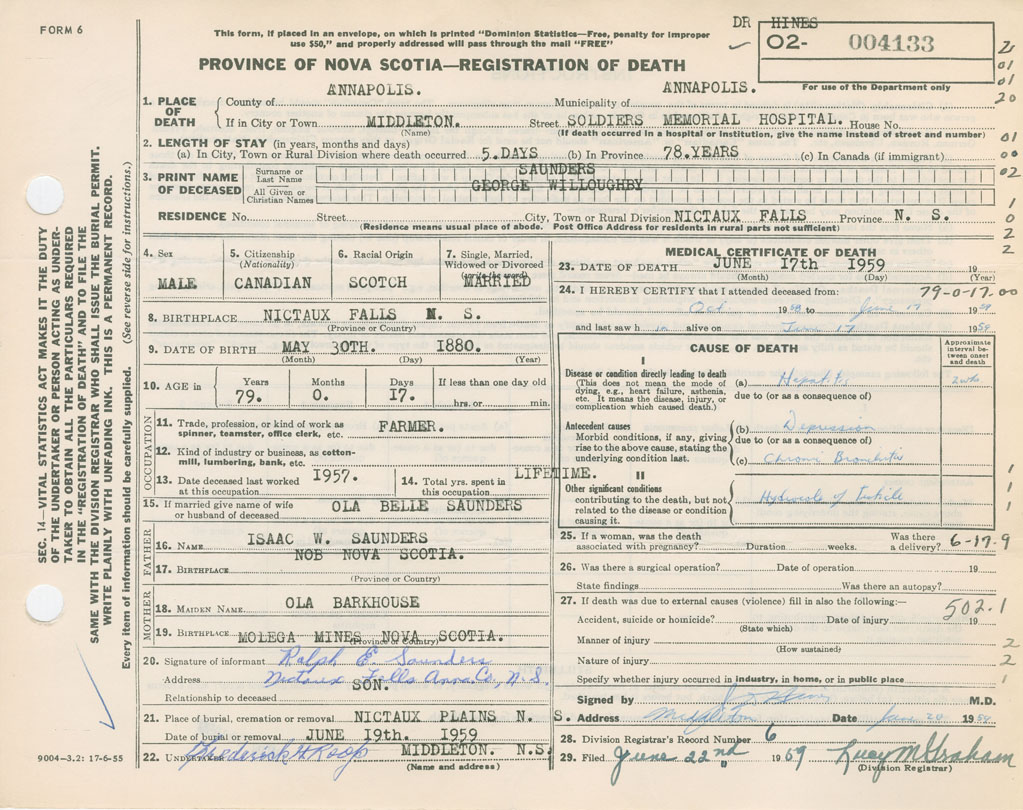 FORM 6
This form, if placed in an envelope, on which is printed "Dominion Statistics—Free, penalty for improper
use $50," and properly addressed will pass through the mail "FREE"
DR HINES
02- 004133
For use of the Department only
PROVINCE OF NOVA SCOTIA—REGISTRATION OF DEATH
21
01
01
20
01
00
02
1
0
2
2
SEC. 14—VITAL STATISTICS ACT MAKES IT THE DUTY
OF THE UNDERTAKER OR PERSON ACTING AS UNDER-
TAKER TO OBTAIN ALL THE PARTICULARS REQUIRED
IN THE "REGISTRATION OF DEATH" AND TO FILE THE
SAME WITH THE DIVISION REGISTRAR WHO SHALL ISSUE THE BURIAL PERMIT.
WRITE PLAINLY WITH UNFADING INK. THIS IS A PERMANENT RECORD.
Every item of information should be carefully supplied. (See reverse side for instructions.)
1. PLACE OF DEATH
County of ANNAPOLIS. Municipality of ANNAPOLIS.
If in City or Town MIDDLETON. Street SOLDIERS MEMORIAL HOSPITAL. House No.
(Name) (If death occurred in a hospital or institution, give the name instead of street and number)
2. LENGTH OF STAY (in years, months and days)
(a) In City, Town or Rural Division where death occurred 5.DAYS (b) In Province 78.YEARS (c) In Canada (if immigrant)
3. PRINT NAME OF DECEASED
Surname or Last Name SAUNDERS
All Given or Christian Names GEORGE WILLOUGHBY
RESIDENCE No. Street City, Town or Rural Division NICTAUX FALLS Province N. S.
(Residence means usual place of abode. Post Office Address for residents in rural parts not sufficient)
4. Sex MALE
5. Citizenship (Nationality) CANADIAN
6. Racial Origin SCOTCH
7. Single, Married, Widowed or Divorced (write the word) MARRIED
8. BIRTHPLACE NICTAUX FALLS N. S.
(Province or Country)
9. DATE OF BIRTH MAY 30TH. 1880.
(Month) (Day) (Year)
10. AGE in Years 79. Months 0. Days 17. If less than one day old hrs. or min.
OCCUPATION
11. Trade, profession, or kind of work as spinner, teamster, office clerk, etc. FARMER.
12. Kind of industry or business, as cotton-mill, lumbering, bank, etc.
13. Date deceased last worked at this occupation 1957.
14. Total yrs. spent in this occupation LIFETIME.
15. If married give name of wife or husband of deceased OLA BELLE SAUNDERS
FATHER
16. NAME ISAAC W. SAUNDERS
17. BIRTHPLACE NOB NOVA SCOTIA.
(Province or Country)
MOTHER
18. MAIDEN NAME OLA BARKHOUSE
19. BIRTHPLACE MOLEGA MINES NOVA SCOTIA.
(Province or Country)
20. Signature of informant Ralph E. Saunders
Address Nictaux Falls Anna Co, N. S.
Relationship to deceased SON.
21. Place of burial, cremation or removal NICTAUX PLAINS N. S.
Date of burial or removal JUNE 19th. 1959
22. UNDERTAKER Frederick H Roop MIDDLETON. N.S.
(Name and address)
9004—3.2: 17-6-55
MEDICAL CERTIFICATE OF DEATH
23. DATE OF DEATH JUNE 17th 1959 19
(Month) (Day) (Year)
24. I HEREBY CERTIFY that I attended deceased from: 79-0-17.00
Oct 1958 to June 17 1959
and last saw him alive on June 17 1959
CAUSE OF DEATH
Approximate interval between onset and death
I
Disease or condition directly leading to death
(This does not mean the mode of dying, e.g., heart failure, asthenia, etc. It means the disease, injury, or complication which caused death.)
(a) Hepatitis 2 wks
due to (or as a consequence of)
Antecedent causes
Morbid conditions, if any, giving rise to the above cause, stating the underlying condition last.
(b) Depression
due to (or as a consequence of)
(c) Chronic Bronchitis
II
Other significant conditions
contributing to the death, but not related to the disease or condition causing it.
Hydrocele of Testicle
1
1
1
25. If a woman, was the death associated with pregnancy? Duration weeks. Was there a delivery? 6-17-9
26. Was there a surgical operation? Date of operation 19
State findings Was there an autopsy?
27. If death was due to external causes (violence) fill in also the following:— 502.1
Accident, suicide or homicide? Date of injury 19
(State which)
Manner of injury 2
(How sustained)
Nature of injury 2
Specify whether injury occurred in industry, in home, or in public place 1
Signed by M.D.
Address Middleton Date June 20 1959
28. Division Registrar's Record Number 6
29. Filed June 22nd 1959 Lucy M Graham
(Division Registrar)